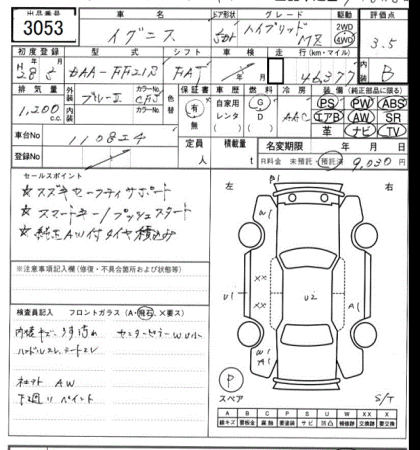 出品番号 車名 ドア形状 グレード 駆動 評価点
3053 イグニス 5Dr ハイブリッド MX 2WD 4WD 3.5
初度登録 型式 シフト 車検 走行(km・マイル) 内装
H28 5 DAA-FF21S FAT 年 月 46377 B
排気量 外装 カラーNo. 色替 保証書 車歴 燃料 冷房 装備(純正部品に限る)
1,200 c.c. ブルーⅡ 内装 カラーNo. 有・無 自家用 レンタ G D AAC PS PW ABS
エアB AW SR
革 ナビ TV
車台No 110824
登録No 定員 人 積載量 t 名変期限 年 月 日
R料金 未預託・預託済 9,030 円
セールスポイント
☆スズキセーフティサポート
☆スマートキー/プッシュスタート
☆純正AW付タイヤ積込み
※注意事項記入欄(修復・不具合箇所および状態等)
検査員記入 フロントガラス(A・飛石・X要ス)
内装キズ、うす汚れ センターピラーWU小
ハンドルスレ、シートスレ
社外AW
下廻りペイント
左 右
B1
W1
XX
XX
U1
U2
A1
W1
A1
P
スペア
S/T
A B C P S U W X XX
線キズ 要板金 腐蝕 要塗装 サビ 凹凸 補修跡 要交換 交換済